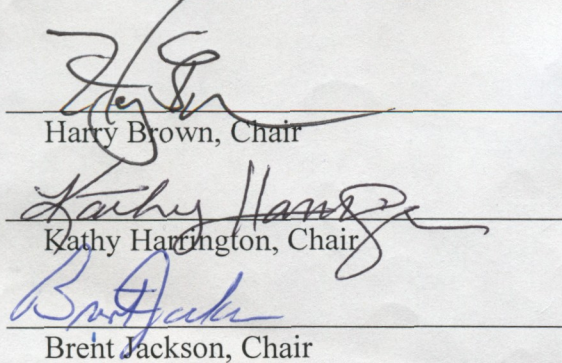 Harry Brown, Chair
Kathy Harrington
Kathy Harrington, Chair
Brent Jackson
Brent Jackson, Chair